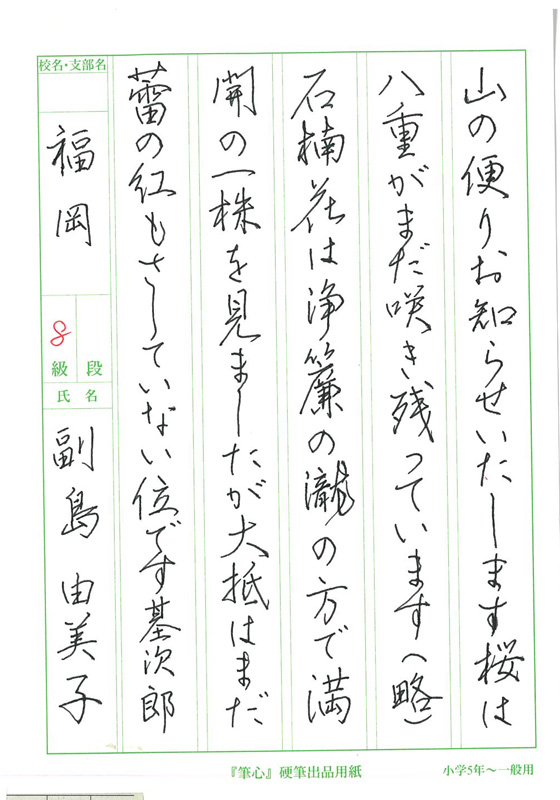 山の便りお知らせいたします桜は
八重がまだ咲き残っています（略）
石楠花は浄簾の瀧の方で満
開の一株を見ましたが大抵はまだ
蕾の紅もさしていない位です基次郎
校名・支部名
福岡
8
級 段
氏名
副島由美子
『筆心』硬筆出品用紙
小学5年〜一般用